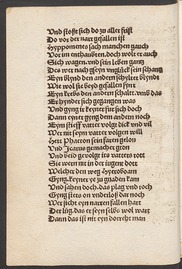 Vnd stoßt sich do zu aller frist
Do vor der narr gefallen ist
Hyppomenes sach manchen gauch
Vor im enthaubten, doch wolt er auch
Sich wagen, vnd sin leben gantz
Des wer nach gsyn vnglück sein schantz
Eyn blynd den andern schyltet blyndt
Wie wol sie beyd gefallen synt
Eyn krebs den andern schalt, vmb das
Er hynder sich gegangen was
Vnd gyng ir keyner für sich doch
Dann eyner gyng dem andern noch
Eym stieff vatter volgt dick vnd vil
Wer nit seym vatter volgen will
Hett Phaeton sein faren gelon
Vnd Icarus gemacher gthon
Vnd beid gevolgt irs vatters rott
Sie weren nit in der jugent dott
Welcher den weg Hyeroboam
Gyng, keyner ye zu gnaden kam
Vnd sahen doch, das plag vnd roch
Gyng stets on vnderlaß dar noch
Wer sicht eyn narren fallen hart
Der lug, das er seyn selbs wol wart
Dann das ist nit eyn dorecht man